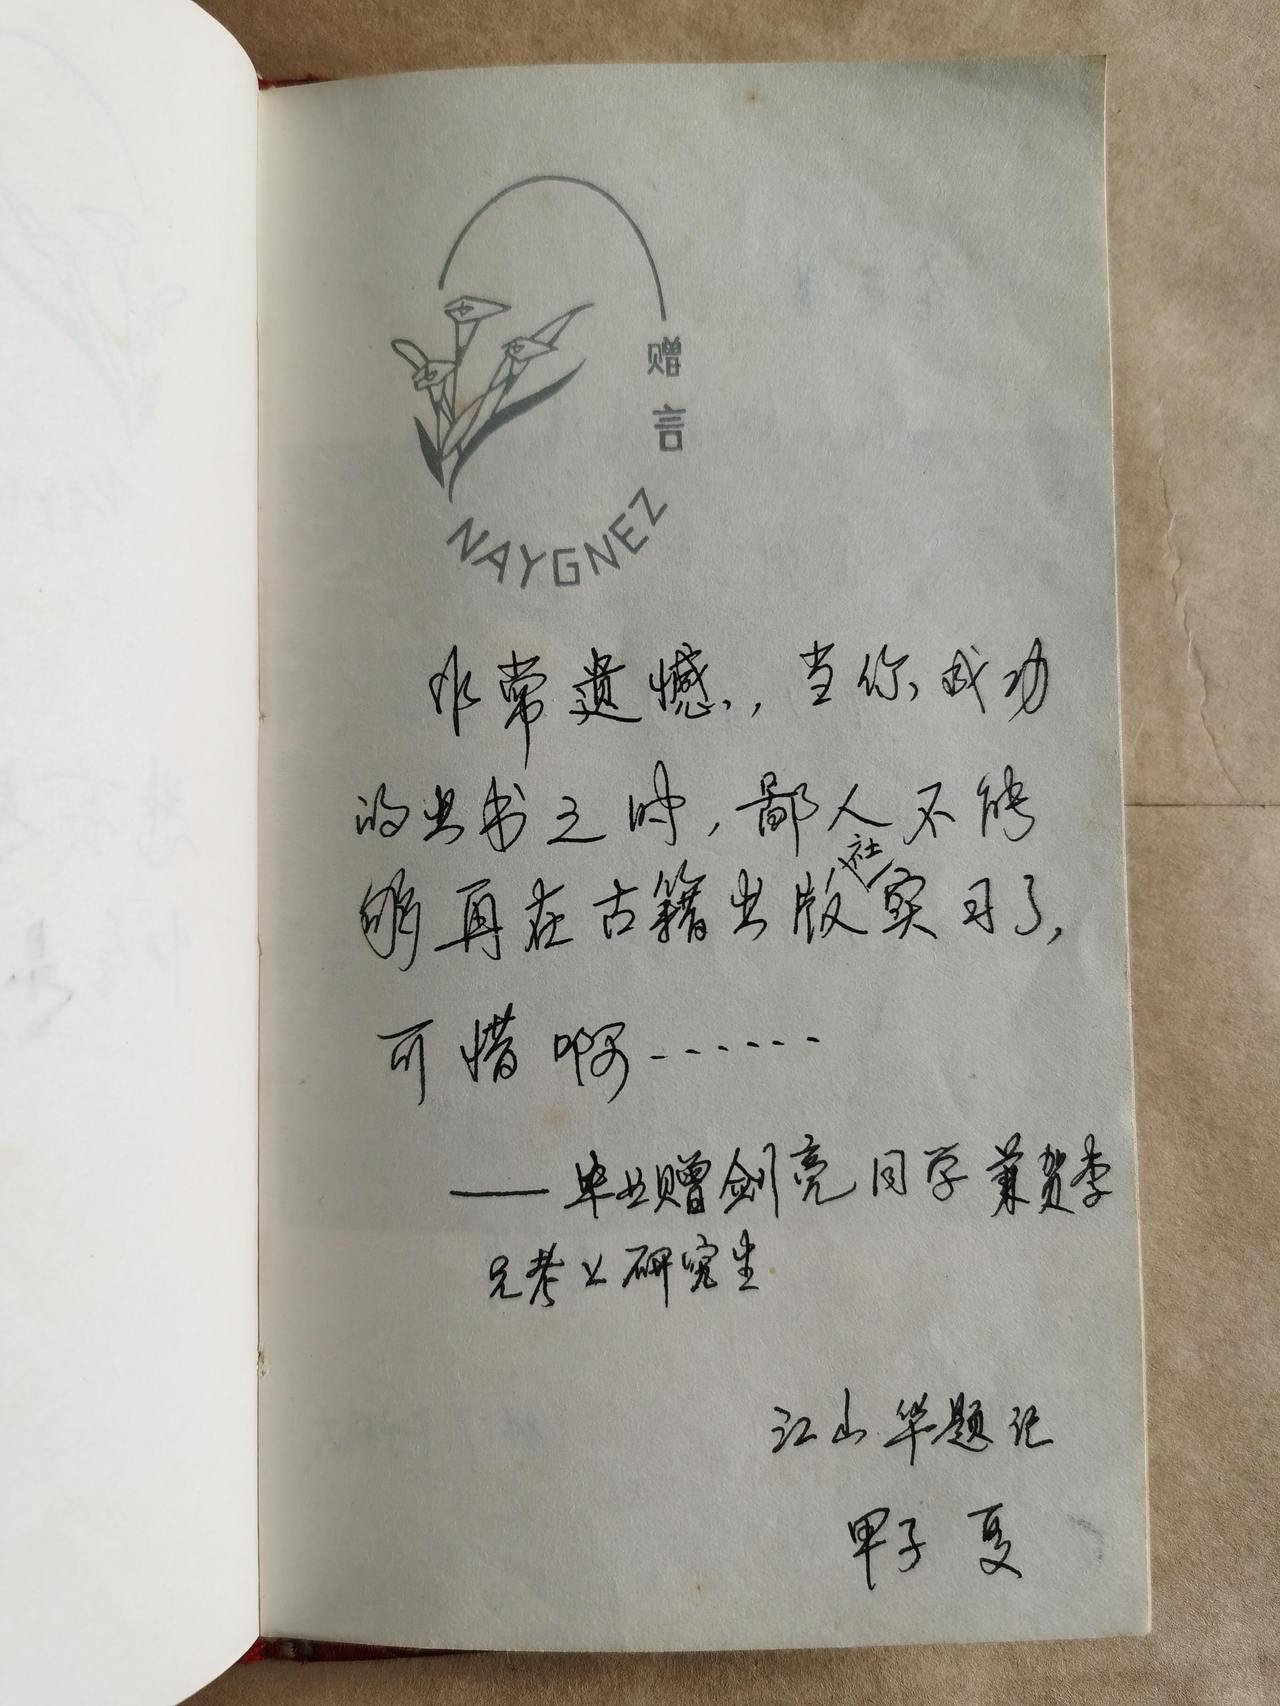 赠
言
NAYGNEZ
非常遗憾,当你成功
的出书之时,鄙人不能
够再在古籍出版社实习了,
可惜啊……
——毕业赠剑亮同学兼贺李
兄考上研究生
江山华题记
甲子 夏